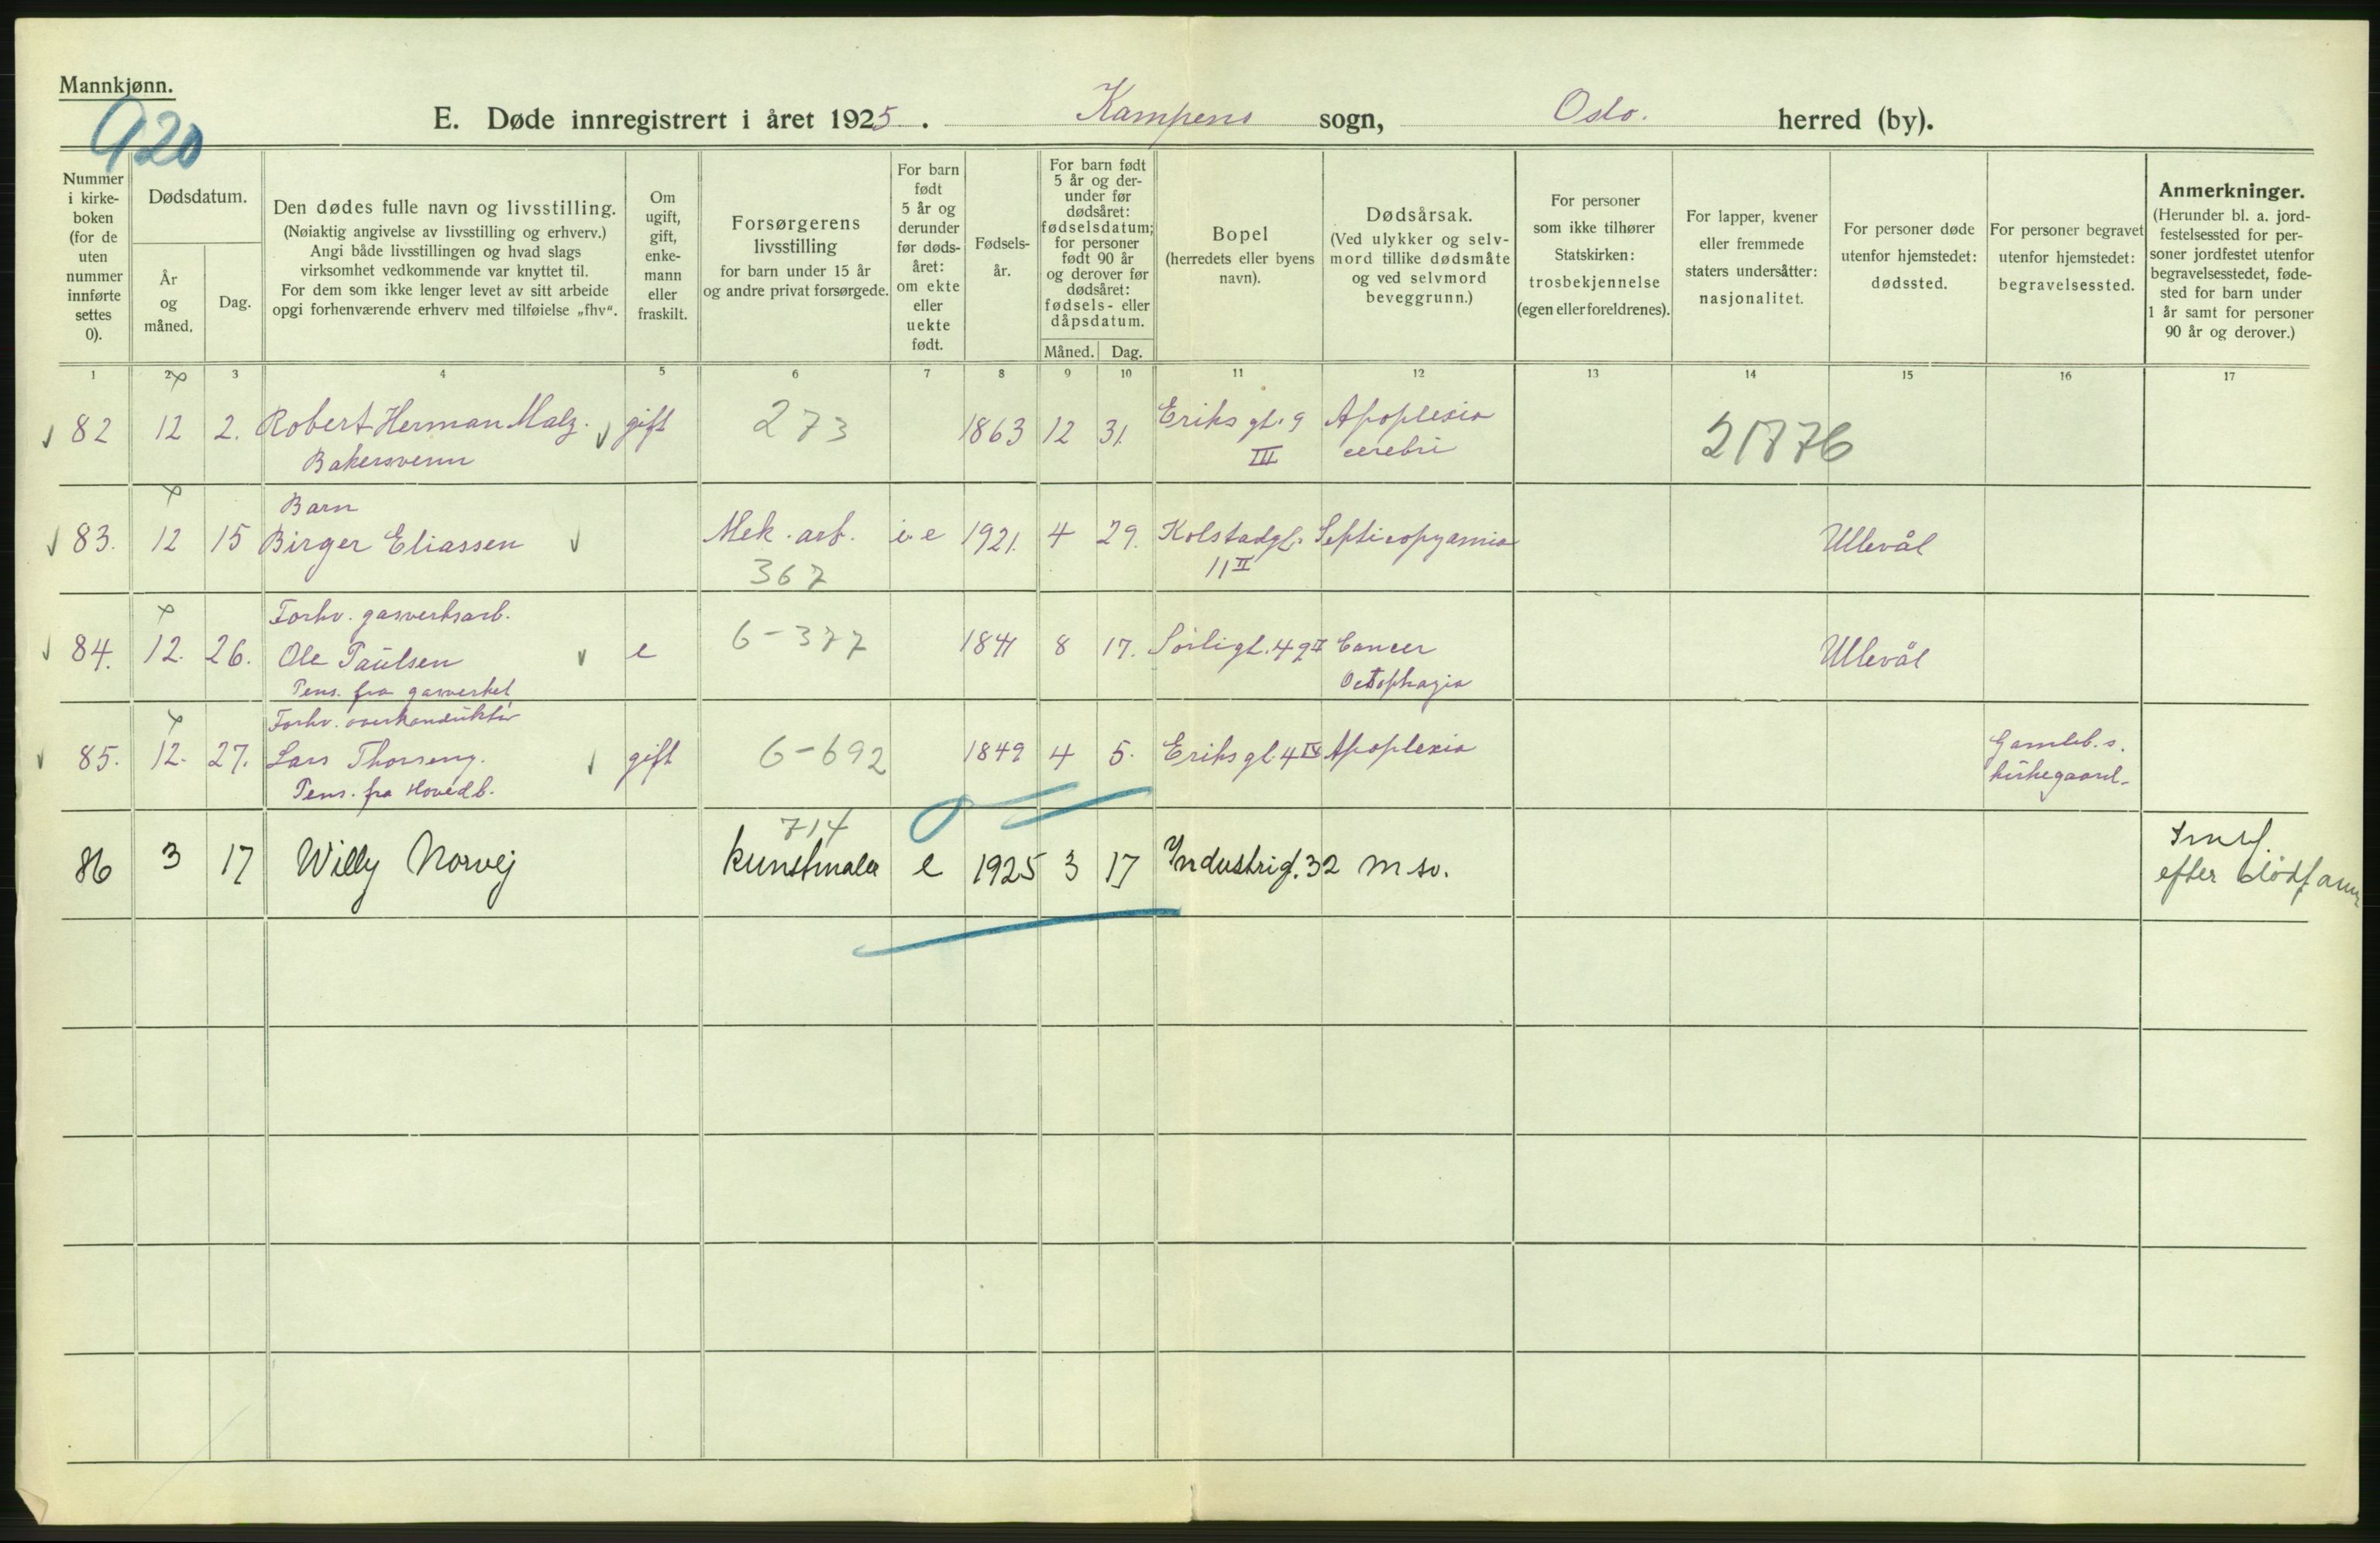 Mannkjønn.
920
E. Døde innregistrert i året 1925. Kampens sogn, Oslo. herred (by).
Nummer i kirke- boken (for de uten nummer innførte settes 0).
Dødsdatum.
År og måned.
Dag.
Den dødes fulle navn og livsstilling.
(Nøiaktig angivelse av livsstilling og erhverv.)
Angi både livsstillingen og hvad slags
virksomhet vedkommende var knyttet til.
For dem som ikke lenger levet av sitt arbeide
opgi forhenværende erhverv med tilføielse „fhv“.
Om ugift, gift, enke- mann eller fraskilt.
Forsørgerens
livsstilling
for barn under 15 år
og andre privat forsørgede.
For barn født 5 år og derunder før døds- året: om ekte eller uekte født.
Fødsels- år.
For barn født 5 år og der- under før dødsåret: fødselsdatum; for personer født 90 år og derover før dødsåret: fødsels- eller dåpsdatum.
Måned. Dag.
Bopel
(herredets eller byens
navn).
Dødsårsak.
(Ved ulykker og selv-
mord tillike dødsmåte
og ved selvmord
beveggrunn.)
For personer
som ikke tilhører
Statskirken:
trosbekjennelse
(egen eller foreldrenes).
For lapper, kvener
eller fremmede
staters undersåtter:
nasjonalitet.
For personer døde
utenfor hjemstedet:
dødssted.
For personer begravet
utenfor hjemstedet:
begravelsessted.
Anmerkninger.
(Herunder bl. a. jord-
festelsessted for per-
soner jordfestet utenfor
begravelsesstedet, føde-
sted for barn under
1 år samt for personer
90 år og derover.)
1 2 3 4 5 6 7 8 9 10 11 12 13 14 15 16 17
82 12 2. Robert Herman Malz. gift 273 1863 12 31. Eriks gt. 9 Apoplexia 21876
Bakersvenn III cerebri
Barn
83. 12 15 Birger Eliassen Mek. arb. e 1921. 4 29. Kolstadgt. Septicopyämia Ullevål
367 11 II
Forhv. gasverksarb.
84. 12. 26. Ole Paulsen e 6-377 8 17. Sørligt. 49 II Cancer Ullevål
Pens. fra gasverket
Forhv. overkonduktør
85. 12. 27. Lars Thorseng. gift 6-692 1849 4 5. Eriks gt. 4 Apoplexia Gamleb. s.
Pens. fra Hovedb. kirkegaard.
714
86 3 17 Willy Norvej kunstmaler e 1925 3 17 Industrig. 32 m sv.
efter dødfanm